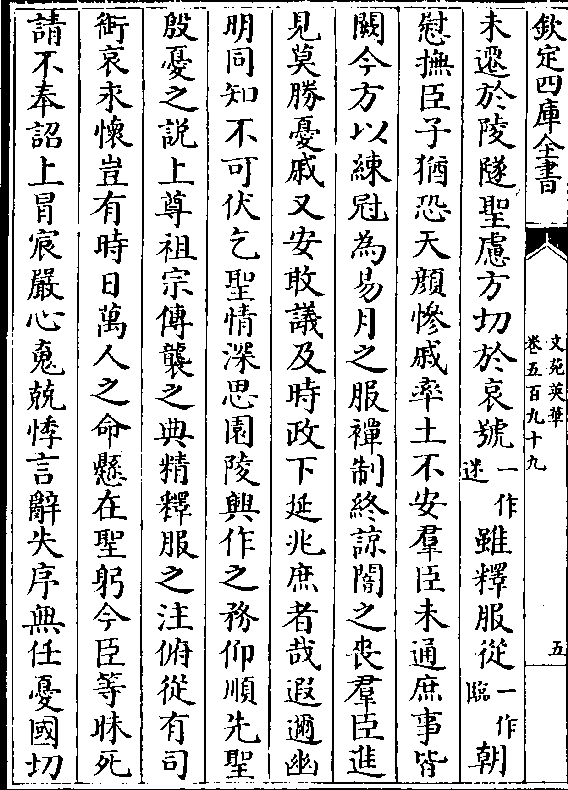 欽定四庫全書
文苑英華
卷五百九十九
五
未遷於陵隧聖慮方切於哀號一作迷雖釋服從一作臨朝
慰撫臣子猶恐天顔慘戚率土不安羣臣未通庶事皆
闕今方以練冠為易月之服禫制終諒闇之喪羣臣進
見莫勝憂戚又安敢議及時政下延兆庶者哉遐邇幽
明同知不可伏乞聖情深思園陵興作之務仰順先聖
殷憂之説上尊祖宗傳襲之典精釋服之注俯從有司
銜哀永懷豈有時日萬人之命懸在聖躬今臣等昧死
請不奉詔上冒宸嚴心䰟兢悸言辭失序無任憂國切